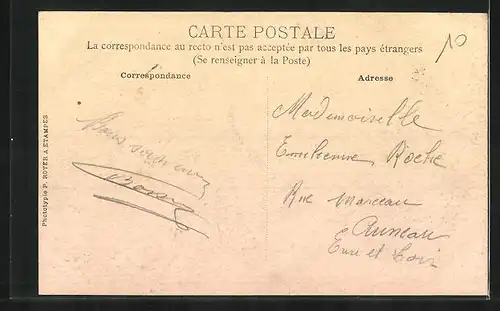 CARTE POSTALE
La correspondance au recto n'est pas acceptée par tous les pays étrangers
(Se renseigner à la Poste)
Correspondance
Adresse
10
Mademoiselle
Roche
Rue Marceau
Auneau
Eure et Loir
Phototypie P. ROYER A ETAMPES